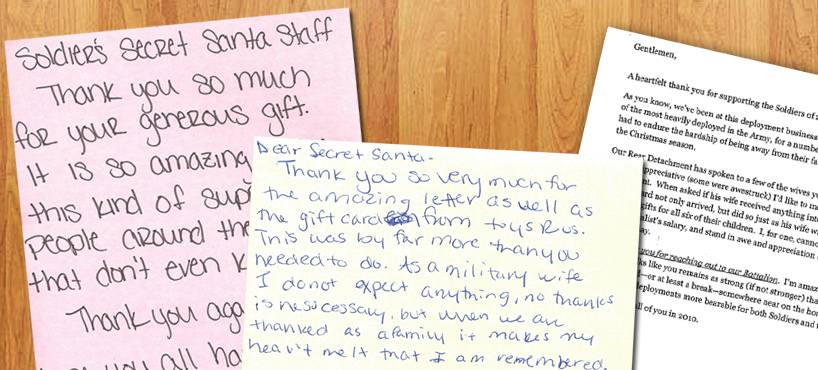 Soldier's Secret Santa Staff
Thank you so much
for your generous gift.
It is so amazing
this kind of sup
people around the
that don't even k
Thank you aga
you all ha
Dear Secret Santa-
Thank you so very much for
the amazing letter as well as
the gift card from toys R us.
This was by far more than you
needed to do. As a military wife
I do not expect anything, no thanks
is nesicessary, but when we are
thanked as a family it makes my
heart melt that I am remembered.
Gentlemen,
A heartfelt thank you for supporting the Soldiers of 2
As you know, we've been at this deployment business
of the most heavily deployed in the Army, for a numbe
had to endure the hardship of being away from their fa
the Christmas season.
Our Rear Detachment has spoken to a few of the wives yo
appreciative (some were awestruck) I'd like to ma
nt. When asked if his wife received anything int
rd not only arrived, but did so just as his wife w
gifts for all six of their children. I, for one, cannot
alist's salary, and stand in awe and appreciation
ay.
you for reaching out to our Battalion. I'm amaz
ks like you remains as strong (if not stronger) tha
—or at least a break—somewhere near on the hor
deployments more bearable for both Soldiers and
ll of you in 2010.